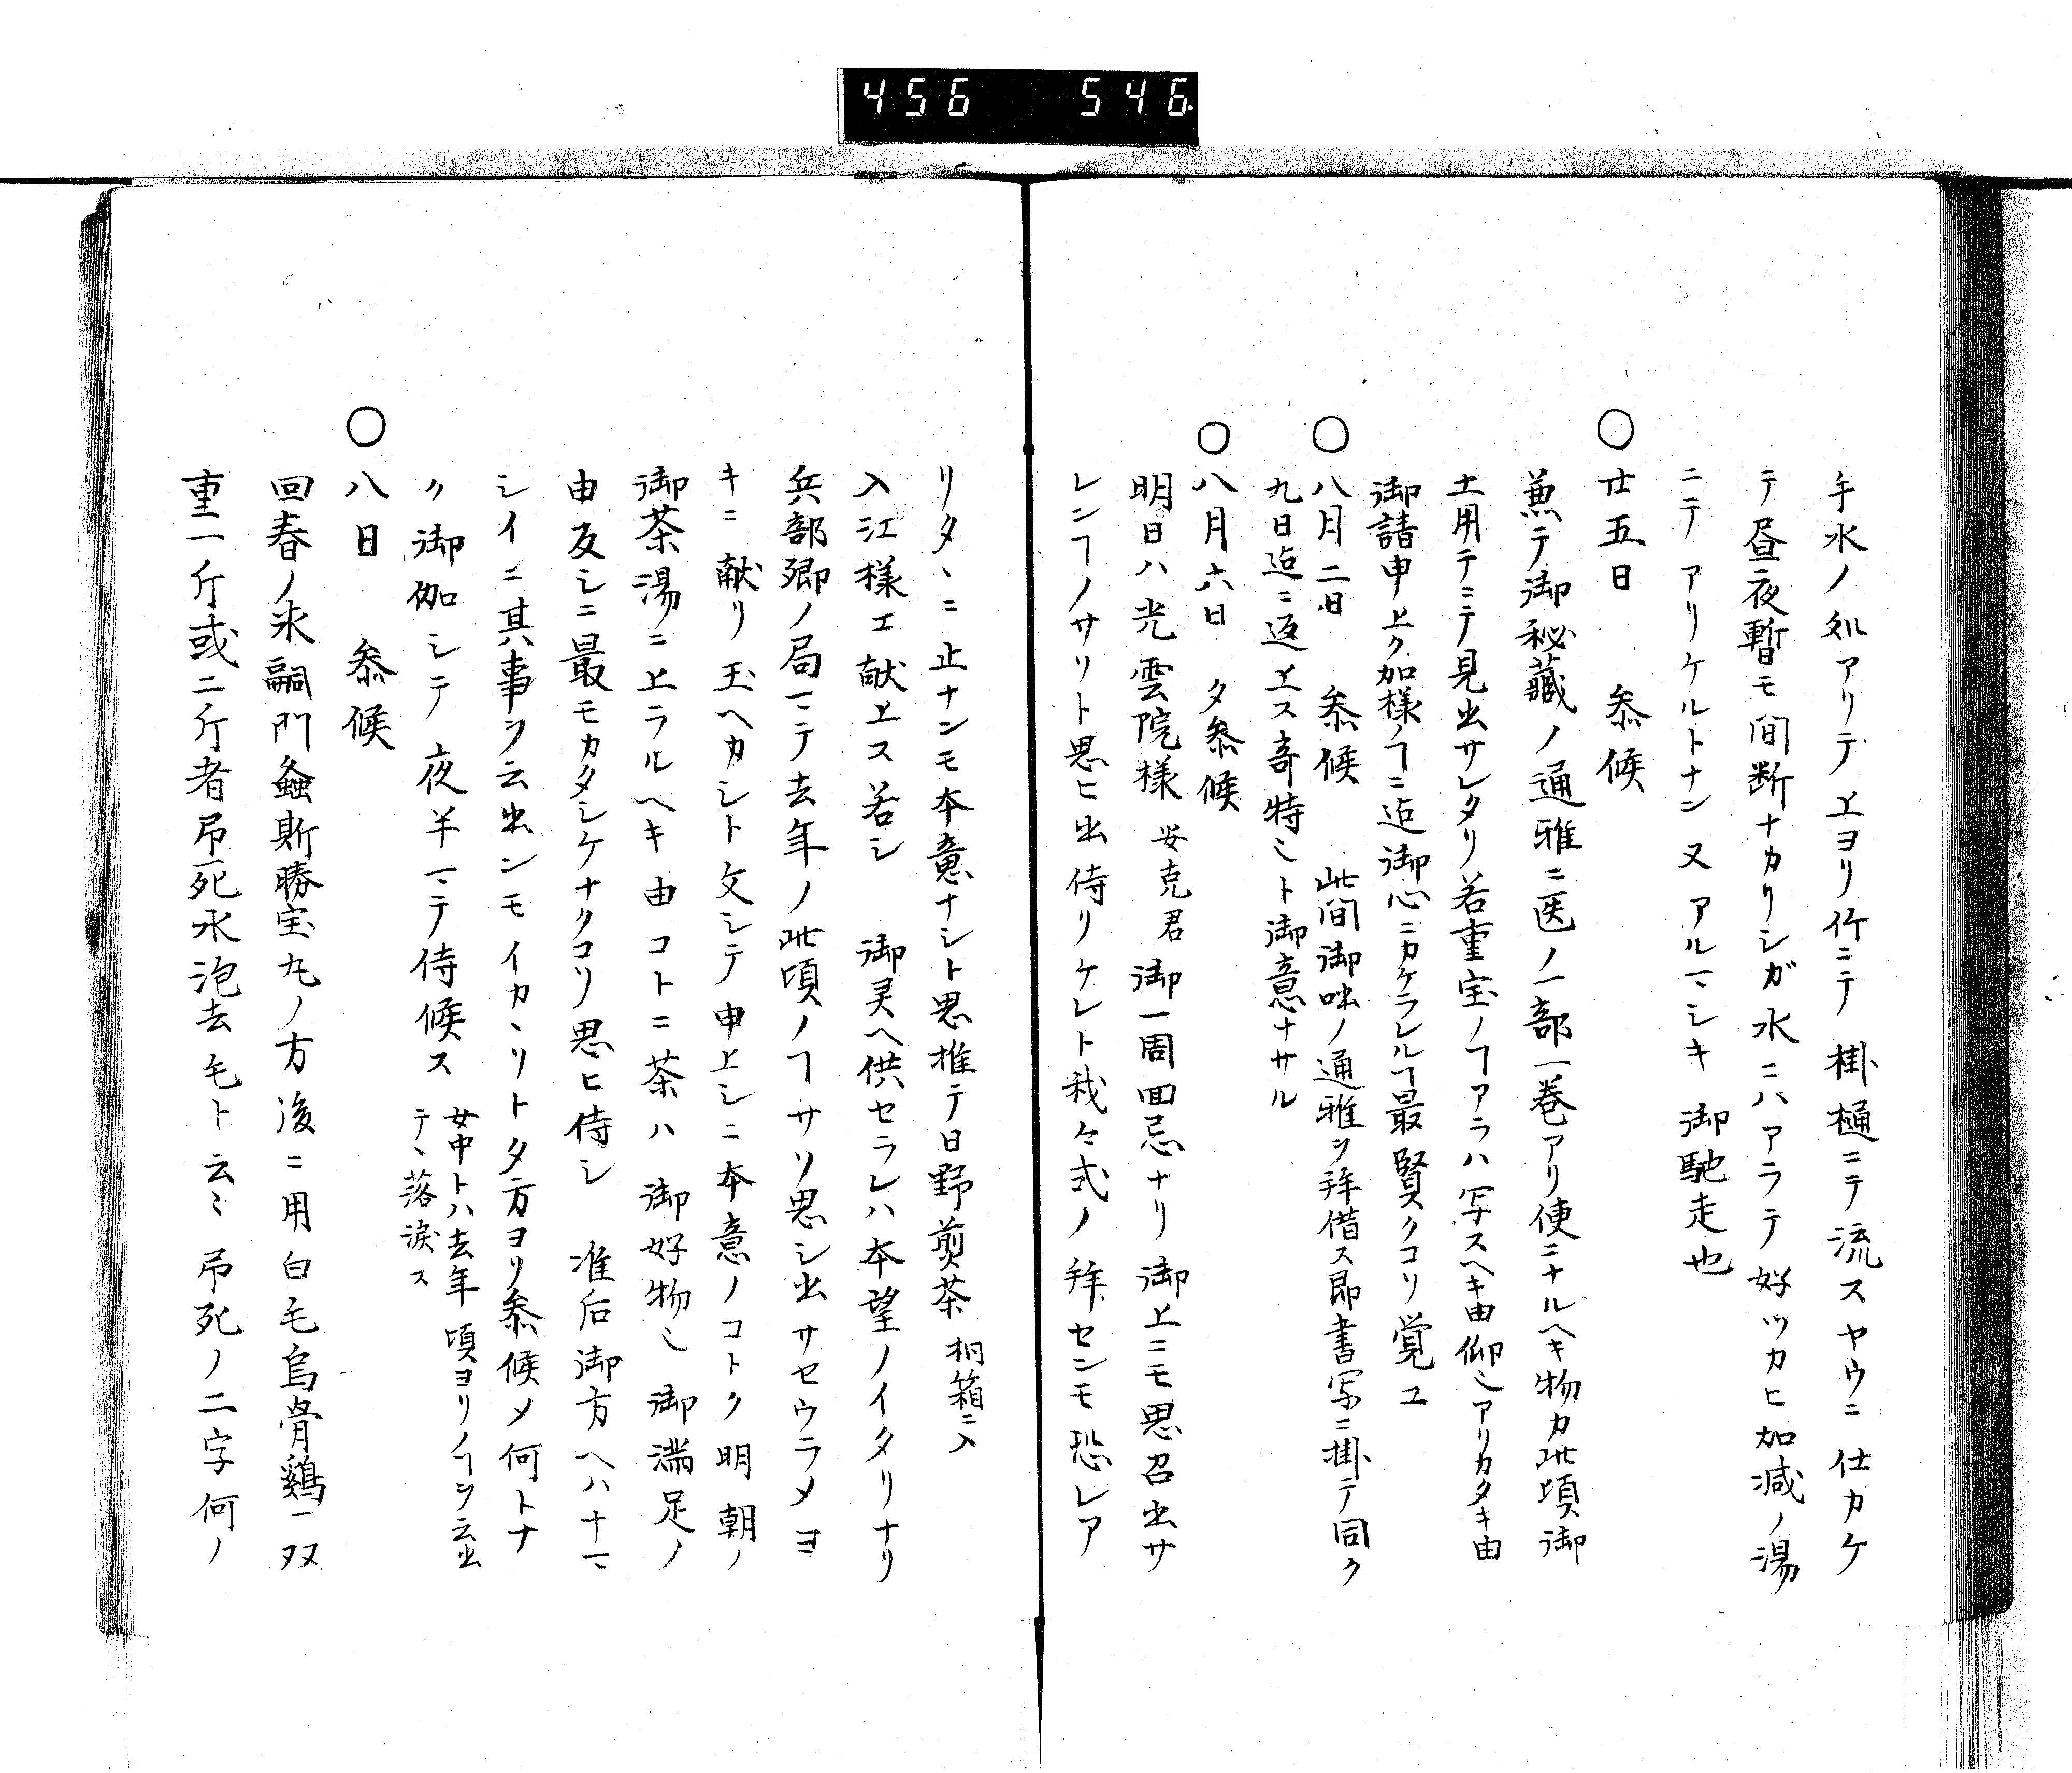 456 546.
手水ノ処アリテ上ヨリ竹ニテ掛樋ニテ流スヤウニ仕カケ
テ昼夜暫モ間断ナカリシガ水ニハアラテ好ツカヒ加減ノ湯
ニテアリケルトナン又アルマシキ御馳走也
〇廿五日 叅候
兼テ御秘藏ノ通雅ニ医ノ一部一巻アリ使ニナルヘキ物カ此頃御
土用干ニテ見出サレタリ若重宝ノヿアラハ写スヘキ由仰也アリカタキ由
御請申上ク加様ノヿニ迠御心ニカケラレルヿ最賢クコソ覚ユ
〇八月二日 叅候 此間御咄ノ通雅ヲ拜借ス即書写ニ掛テ同ク
九日迠ニ返上ス奇特也ト御意ナサル
〇八月六日 夕叅候
明日ハ光雲院様 安克君 御一周回忌ナリ御上ニモ思召出サ
レンヿノサソト思ヒ出侍リケレト我々式ノ拜センモ恐レア
リタヽニ止ナンモ本意ナシト思推テ日野煎茶 桐箱ニ入
入江様エ献上ス若シ 御灵ヘ供セラレハ本望ノイタリナリ
兵部卿ノ局マテ去年ノ此頃ノヿサソ思シ出サセラメヨ
キニ献リ玉ヘカシト文シテ申上シニ本意ノコトク明朝ノ
御茶湯ニ上ラルヘキ由コトニ茶ハ御好物也御満足ノ
由反シニ最モカタシケナクコソ思ヒ侍シ 准后御方ヘハナマ
シイニ其事ヲ云出ンモイカヽリト夕方ヨリ叅候〆何トナ
ク御伽シテ夜半マテ侍候ス 女中トハ去年頃ヨリノヿヲ云出
テヽ落涙ス
〇八日 叅候
回春ノ求嗣門螽斯勝宝丸ノ方後ニ用白毛烏骨鷄一双
重一斤或二斤者吊死水泡去毛ト云〻吊死ノ二字何ノ